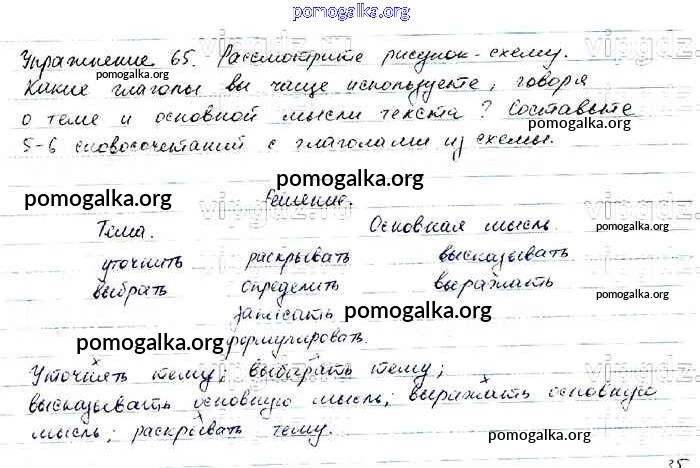 pomogalka.org
Упражнение 65. Рассмотрите рисунок-схему.
pomogalka.org
Какие глаголы вы чаще используете, говоря
pomogalka.org
о теме и основной мысли текста? Составьте
pomogalka.org
5-6 словосочетаний с глаголами из схемы.
pomogalka.org
pomogalka.org
Решение.
Тема. Основная мысль.
pomogalka.org
уточнить раскрывать высказывать
выбрать определить выражать
pomogalka.org
pomogalka.org
записать
pomogalka.org
формулировать.
Уточнять тему; выбирать тему;
высказывать основную мысль; выражать основную
мысль; раскрывать тему.
pomogalka.org
35
vipgdz.ru